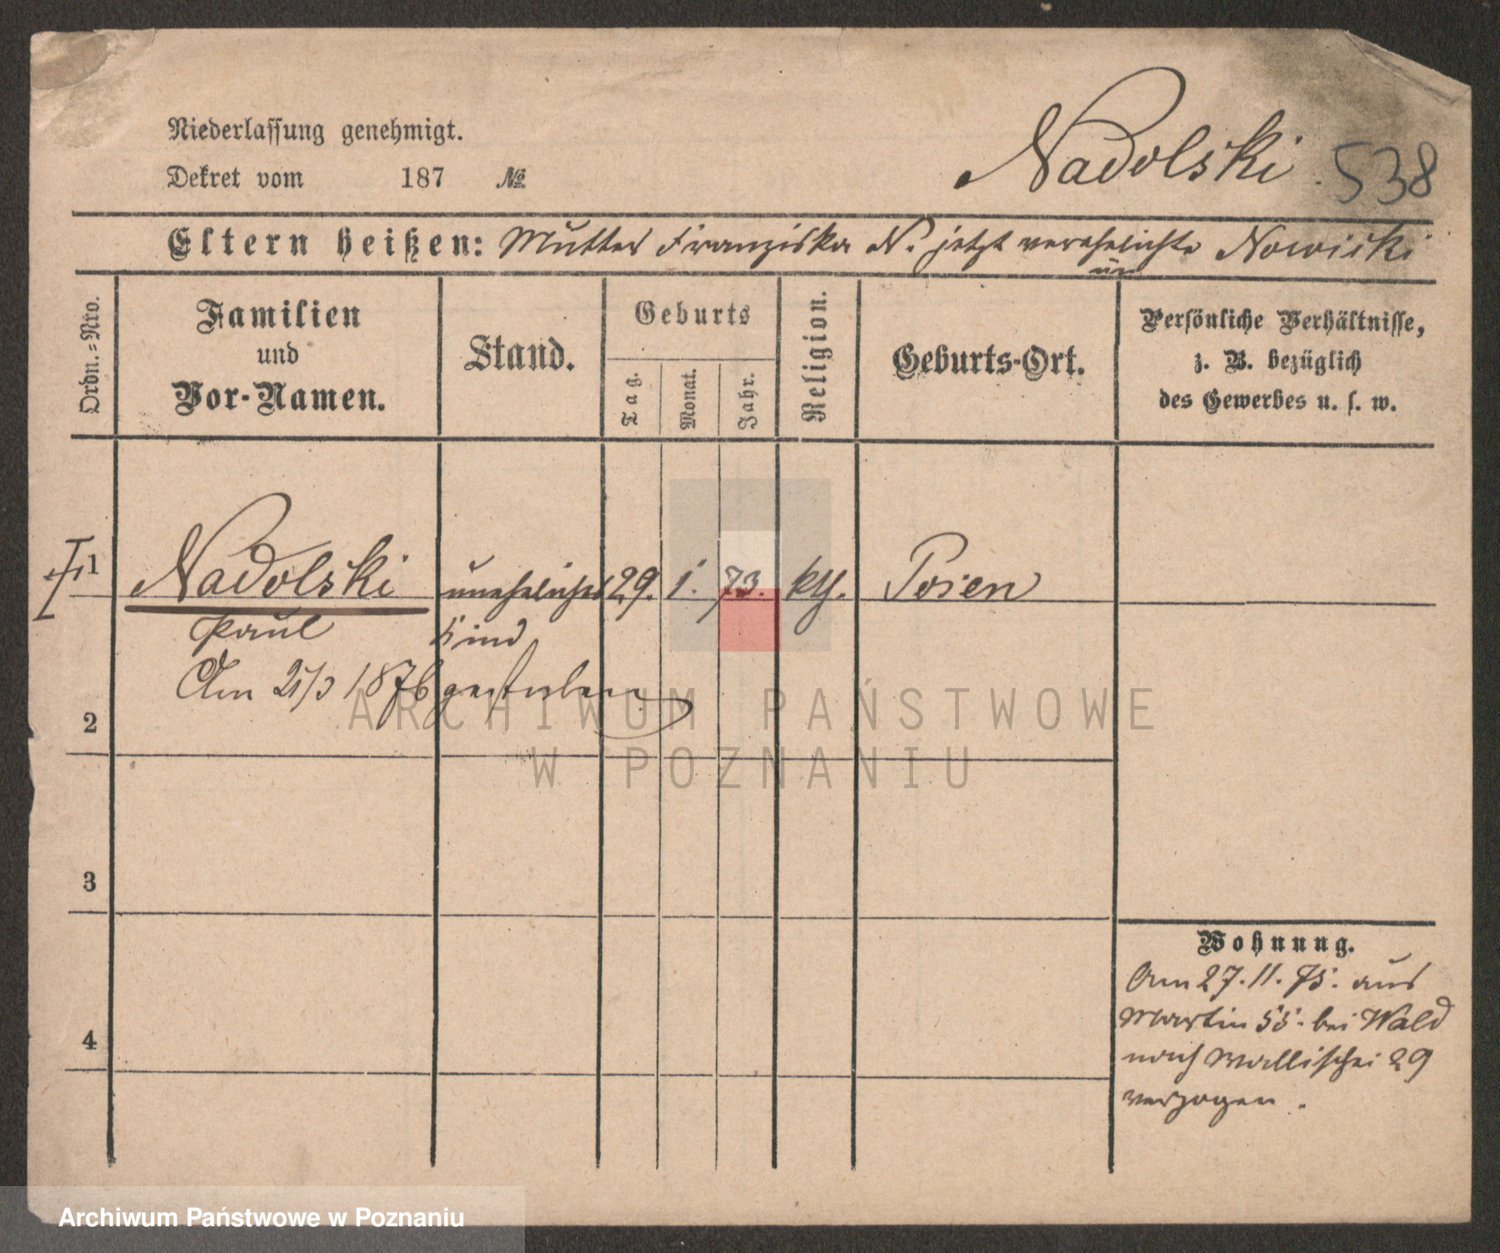 Niederlassung genehmigt.
Dekret vom 187 №
Nadolski 538
Eltern heißen: Mutter Franziska N. jetzt verehelichte Nowicki
Ordn.-Nro.
Familien
und
Vor-Namen.
Stand.
Geburts
Tag.
Monat.
Jahr.
Religion.
Geburts-Ort.
Persönliche Verhältnisse,
z. B. bezüglich
des Gewerbes u. s. w.
1 Nadolski uneheliches 29. 1. 73. kth. Posen
Paul Kind
Am 21/3 1876 gestorben
2
3
4
Wohnung.
Am 27.11.75. aus
Martin 55. bei Wald
nach Wallischei 29
verzogen.
ARCHIWUM PAŃSTWOWE
W POZNANIU
Archiwum Państwowe w Poznaniu